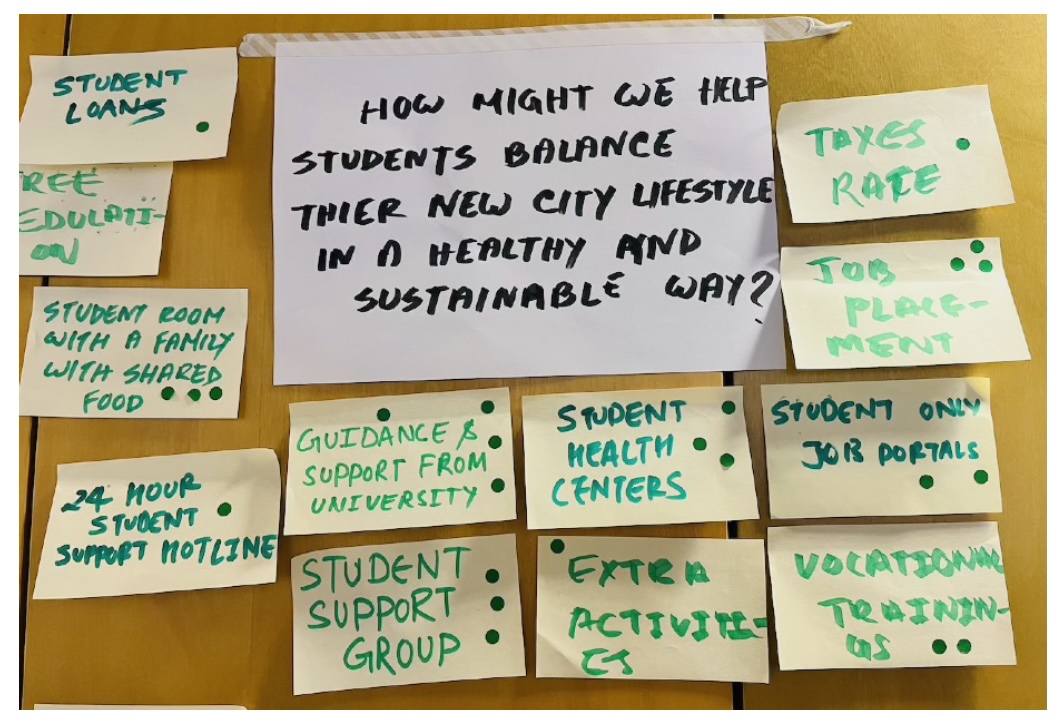 STUDENT
LOANS
REE
EDULATI-
ON
STUDENT ROOM
WITH A FAMILY
WITH SHARED
FOOD
24 HOUR
STUDENT
SUPPORT HOTLINE
HOW MIGHT WE HELP
STUDENTS BALANCE
THIER NEW CITY LIFESTYLE
IN A HEALTHY AND
SUSTAINABLE WAY?
GUIDANCE &
SUPPORT FROM
UNIVERSITY
STUDENT
SUPPORT
GROUP
STUDENT
HEALTH
CENTERS
EXTRA
ACTIVITI-
ES
TAXES
RATE
JOB
PLACE-
MENT
STUDENT ONLY
JOB PORTALS
VOCATIONAL
TRAININ-
GS